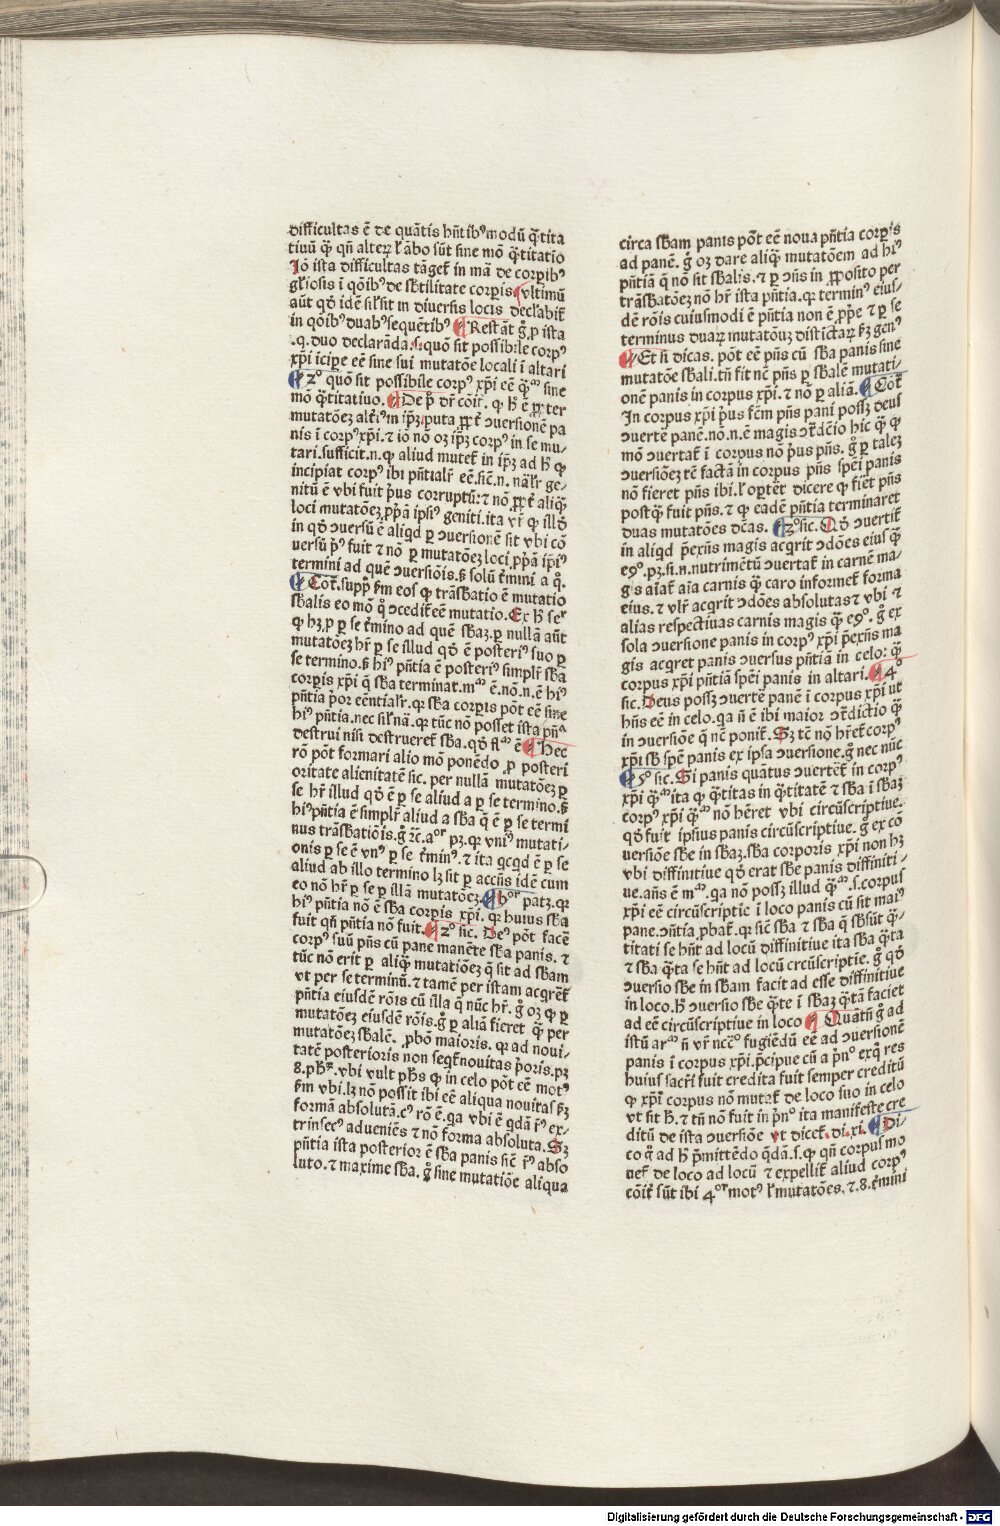 difficultas ē de quātis hñtibꝰ modū q̄tita
tiuū qꝫ qñ alteꝝ l̓ ābo sūt sine mō q̄titatio
Jō ista difficultas tāget̄ in mā de corpibꝰ
gl̓iosis ī qōibꝰ de sb̓tilitate corpis ¶ vltimū
aūt qd̓ idē sil̓ sit in diuersis locis decl̓abit̄
in qōibꝰ duabꝰ sequētibꝰ ¶ Restāt g̊ ꝓ ista
.q. duo declarāda .s. quō sit possibile corpꝰ
xp̄i īcipe eē sine sui mutatōe locali ī altari
¶ 2º quō sit possibile corpꝰ xp̄i eē q̄ᵐ sine
mō q̄titatiuo. ¶ De p̊ dr̄ cōit̄. ꝙ h̄ ē ꝓpter
mutatōeꝫ alt̓iꝰ in ip̄ꝫ puta ꝓpt̄ ↄuersionē pa
nis ī corpꝰ xp̄i. ⁊ iō nō oꝫ ip̄ꝫ corpꝰ in se mu-
tari. sufficit .n. ꝙ aliud mutet̄ in ip̄ꝫ ad h̄ ꝙ
incipiat corpꝰ ibi pñtialr̄ eē. sic̄ .n. nãlr̄ ge-
nitū ē vbi fuit p̓us corruptū: ⁊ nō ꝓpt̄ aliq̄
loci mutatōeꝫ ꝓp̓ā ipsiꝰ geniti. ita vr̄ ꝙ illd̓
in qd̓ ↄuersū ē aliqd ꝑ ↄuersionē sit vbi cō
versū p̓ꝰ fuit ⁊ nō ꝑ mutatōeꝫ loci ꝓp̓ā ip̄iꝰ
termini ad quē ↄuersiōis. ꝫ solū t̓mini a q̊.
¶ Cōt̄. supp̊ fm eos ꝙ trāsb̓atio ē mutatio
sb̓alis eo mō q̊ ↄcedit̄ eē mutatio. Ex h̄ seqr̄
ꝙ hꝫ ꝓ ꝑ se t̓mino ad quē sb̓aꝫ. ꝑ nullā aūt
mutatōeꝫ hr̄ ꝑ se illud qd̓ ē posteriꝰ suo ꝑ
se termino. ꝫ hiꝰ pñtia ē posteriꝰ simplr̄ sb̓a
corpis xp̄i q̄ sb̓a terminat. mᵃ ē. nō .n. ē hiꝰ
pñtia p̓or eēntialr̄. qꝛ sb̓a corpis pōt eē sine
hiꝰ pñtia. nec sil̓ nã. qꝛ tūc nō posset ista pñᵃ
destrui nisi destrueret̄ sb̓a. qd̓ fl̓ᵐ ē ¶ Hec
rō pōt formari alio mō ponēdo ꝓ posteri
oritate alienitatē sic. per nullā mutatōeꝫ ꝑ
se hr̄ illud qd̓ ē ꝑ se aliud a ꝑ se termino. ꝫ
hiꝰ pñtia ē simplr̄ aliud a sb̓a q̄ ē ꝑ se termi
nus trāsb̓atiōis. g̊ ⁊c̄. aᵒʳ pꝫ. qꝛ vniꝰ mutati-
onis ꝑ se ē vnꝰ ꝑ se t̓minꝰ. ⁊ ita qcqd ē ꝑ se
aliud ab illo termino lꝫ sit ꝑ accñs idē cum
eo nō hr̄ ꝑ se ꝑ illā mutatōeꝫ. ¶ bᵒʳ patꝫ. qꝛ
hiꝰ pñtia nō ē sb̓a corpis xp̄i. qꝛ huius sb̓a
fuit qñ pñtia nō fuit. ¶ 2º sic. Deꝰ pōt facē
corpꝰ suū pñs cū pane manēte sb̓a panis. ⁊
tūc nō erit ꝑ aliq̄ mutatiōeꝫ q̄ sit ad sb̓am
vt per se terminū. ⁊ tamē per istam acqrēt̄
pñtia eiusdē rōis cū illa q̄ nūc hr̄. g̊ oꝫ ꝙ ꝑ
mutatōeꝫ eiusdē rōis. g̊ ꝑ aliā fieret q̄ꝫ per
mutatōeꝫ sb̓alē. ꝓbō maioris. qꝛ ad noui-
tatē posterioris non seqt̄ nouitas p̓oris. pꝫ
8. pħꝫ. vbi vult pħs ꝙ in celo pōt eē motꝰ
fm vbi. lꝫ nō possit ibi eē aliqua nouitas ꝫ
formā absolutā. cꝰ rō ē. qa vbi ē qdā r̄ꝰ ex-
trinsecꝰ adueniēs ⁊ nō forma absoluta. Sꝫ
pñtia ista posterior ē sb̓a panis sic̄ r̄ꝰ abso
luto. ⁊ maxime sb̓a. g̊ sine mutatiōe aliqua
circa sb̓am panis pōt eē noua pñtia corpis
ad panē. g̊ oꝫ dare aliq̄ mutatōem ad hiꝰ
pñtiā q̄ nō sit sb̓alis. ⁊ ꝑ ↄñs in ꝓposito per
trāsb̓atōeꝫ nō hr̄ ista pñtia. qꝛ terminꝰ eius-
dē rōis cuiusmodi ē pñtia non ē ꝓp̓e ⁊ ꝑ se
terminus duaꝝ mutatōuꝫ distictaꝝ ꝫ genꝰ
¶ Et si dicas. pōt eē pñs cū sb̓a panis sine
mutatōe sb̓ali. tñ sit nē pñs ꝑ sb̓alē mutati-
onē panis in corpus xp̄i. ⁊ nō ꝑ aliā. ¶ Cōt̄
In corpus xp̄i p̓us fcm pñs pani possꝫ deus
ↄuertē panē. nō .n. ē magis ↄt̄dēio hic q̄ ꝙ
mō ↄuertat̄ ī corpus nō p̓us pñs. g̊ ꝑ taleꝫ
ↄuersiōeꝫ tē factā in corpus pñs spēi panis
nō fieret pñs ibi. l̓ oꝑtet̄ dicere ꝙ fiet̄ pñs
postq̄ fuit pñs. ⁊ ꝙ eadē pñtia terminaret
duas mutatōes dc̄as. ¶ 2º sic. Qd̓ ↄuertit̄
in aliqd p̓exñs magis acqrit ↄdōes eiꝰ q̄ꝫ
eꝯº. pꝫ. si .n. nutrimētū ↄuertat̄ in carnē ma-
gis aīat̄ aīa carnis q̄ꝫ caro informet̄ forma
eius. ⁊ vlr̄ acqrit ↄdōes absolutas ⁊ vbi ⁊
alias respectiuas carnis magis q̄ꝫ eꝯº. g̊ ex
sola ↄuersione panis in corpꝰ xp̄i p̓exñs ma
gis acqret panis ↄuersus pñtiā in celo: q̄ꝫ
corpus xp̄i pñtiā spēi panis in altari. ¶ 4º
sic. Deus possꝫ ↄuertē panē ī corpus xp̄i vt
hñs eē in celo. qa ñ ē ibi maior ↄt̄dictio q̄ꝫ
in ↄuersiōe q̄ nē ponit̄. Sꝫ tē nō hr̄et̄ corpꝰ
xp̄i sb̓ spē panis ex ipsa ↄuersione. g̊ nec nūc
¶ 5º sic. Si panis quātus ↄuertēt̄ in corpꝰ
xp̄i q̄ᵐ ita ꝙ q̄titas in q̄titatē ⁊ sb̓a ī sb̓aꝫ
corpꝰ xp̄i q̄ᵐ nō hēret vbi circūscriptiue.
qd̓ fuit ipsius panis circūscriptiue. g̊ ex cō
uersiōe sb̓e in sb̓aꝫ. sb̓a corporis xp̄i non hꝫ
vbi diffinitiue qd̓ erat sb̓e panis diffiniti-
ue. añs ē mᵐ. qa nō possꝫ illud q̄ᵐ .s. corpus
xp̄i eē circūscriptie ī loco panis cū sit maiꝰ
pane. ↄñtia ꝓbat̄. qꝛ sic̄ sb̓a ⁊ sb̓a q̄ sb̓sūt q̄-
titati se hñt ad locū diffinitiue ita sb̓a q̄ta
⁊ sb̓a q̄ta se hñt ad locū crcūscriptie. g̊ qd̓
ↄuersio sb̓e in sb̓am facit ad esse diffinitiue
in loco. h̄ ↄuersio sb̓e q̄te ī sb̓aꝫ q̄tā faciet
ad eē circūscriptiue in loco ¶ Quātū g̊ ad
istū arᵐ ñ vr̄ nccº fugiēdū eē ad ↄuersionē
panis ī corpus xp̄i. p̓cipue cū a p̓nº exq̄ res
huius sacr̄i fuit credita fuit semper creditū
ꝙ xp̄i corpus nō mutat̄ de loco suo in celo
vt sit h̄. ⁊ tñ nō fuit in p̓nº ita manifeste cre
ditū de ista ↄuersiōe vt dicet̄ .di. xi. ¶ Di-
co g̊ ad h̄ p̓mittēdo qdā .s. ꝙ qñ corpus mo
uet̄ de loco ad locū ⁊ expellit̄ aliud corpꝰ
cōit̄ sūt ibi 4ᵒʳ motꝰ l̓ mutatōes. ⁊ .8. t̓mini
Digitalisierung gefördert durch die Deutsche Forschungsgemeinschaft - DFG